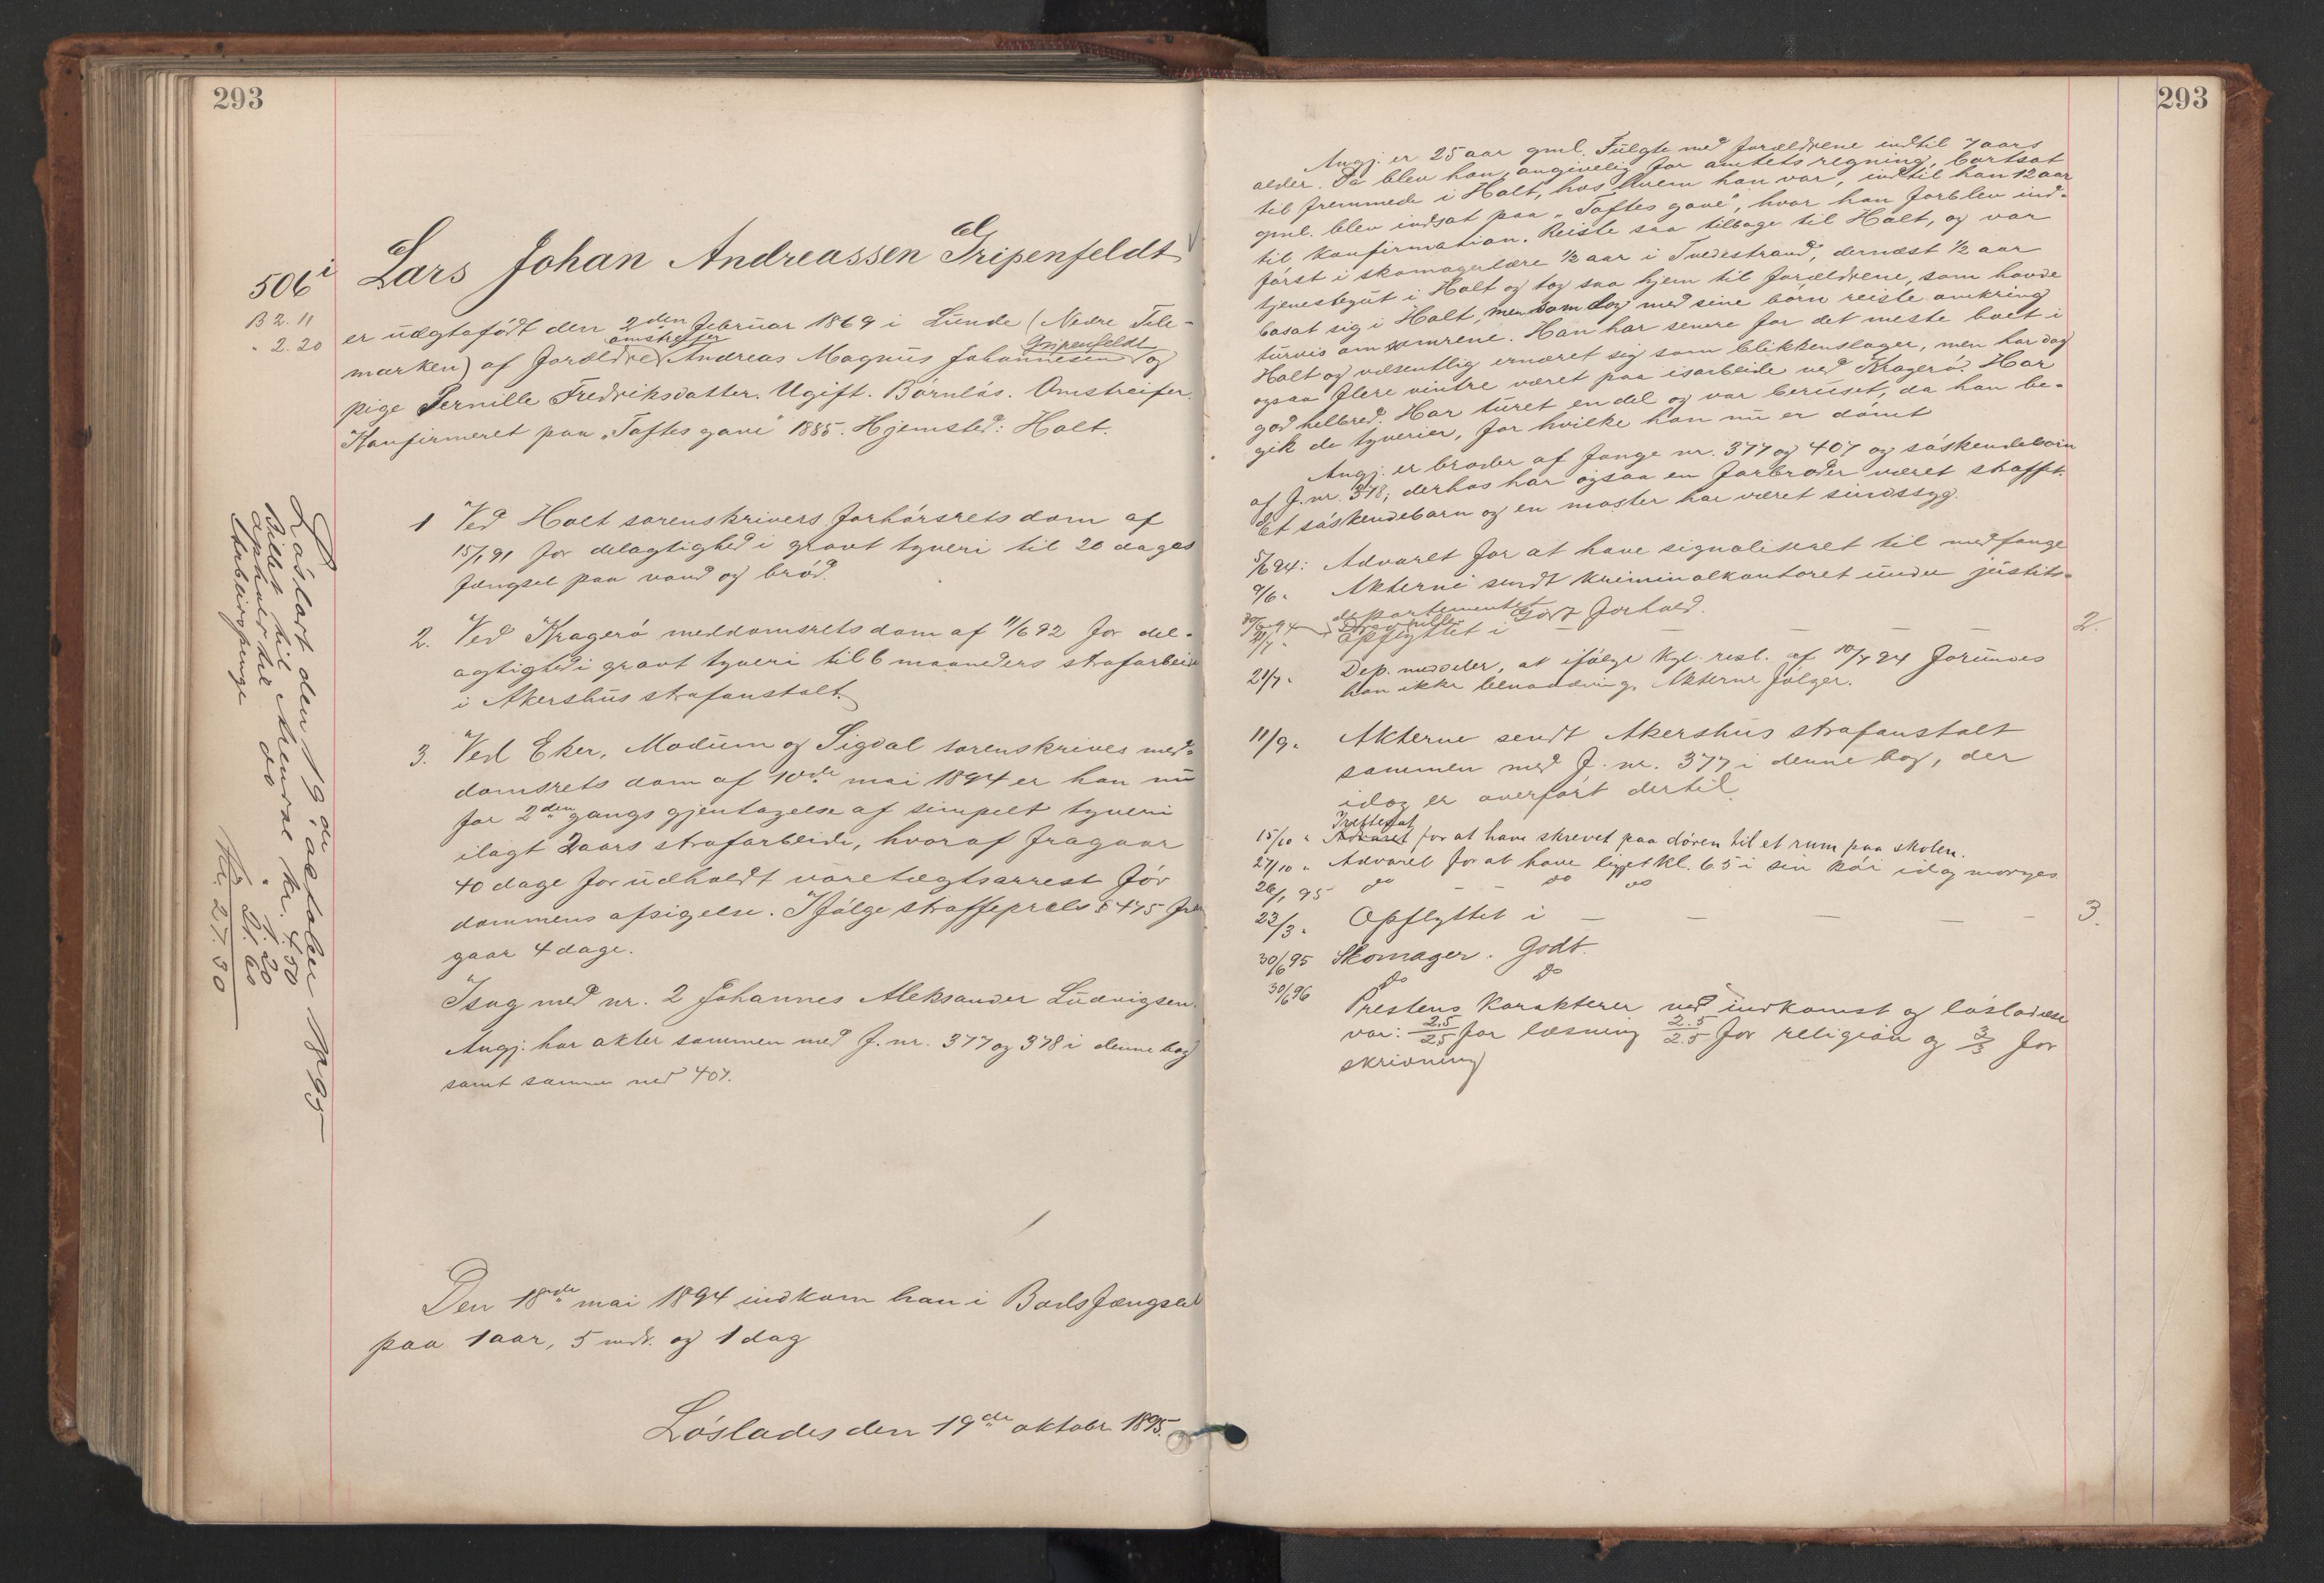 293
506i
B 2. 11
" 2. 20
Lars Johan Andreassen Gripenfeldt
er uægtefødt den 2den februar 1869 i Lunde (Nedre Tele-
marken) af forældre omstreifer Andreas Magnus Johannesen Gripenfeldt og
pige Pernille Fredriksdatter. Ugift. Børnløs. Omstreifer.
Konfirmeret paa "Toftes gave" 1885. Hjemsted: Holt.
1 Ved Holt sorenskrivers forhørsrets dom af
15/1 91 for delagtighed i grovt tyveri til 20 dages
fængsel paa vand og brød.
2. Ved Kragerø meddomsrets dom af 11/6 92 for del-
agtighed i grovt tyveri til 6 maaneders strafarbeide
i Akershus strafanstalt.
3. Ved Eker, Modum og Sigdal sorenskrives med-
domsrets dom af 10de mai 1894 er han nu
for 2den gangs gjentagelse af simpelt tyveri
ilagt 2 aars strafarbeide, hvoraf fragaar
40 dage for udholdt varetægtsarrest før
dommens afsigelse. Ifølge straffeprocls § 475 fra
gaar 4 dage.
Isag med nr. 2 Johannes Aleksander Ludvigsen.
Angj. har akter sammen med f. nr. 377 og 378 i denne bog
samt sammen med 407.
Den 18de mai 1894 indkom han i Bodsfængslet
paa 1 aar, 5 mdr. og 1 dag
Løslades den 19de oktober 1895.
Løsladt den 19de oktober 1895
Billet til Arendal kr. 4.50
ophold til do " 1.20
Arbeidspenge " 21.60
Kr. 27.30
293
Angj. er 25 aar gml. Fulgte med forældrene indtil 7 aars
alder. Da blev han, angivelig for amtets regning, bortsat
til fremmede i Holt, hos hvem han var, indtil han 12 aar
gml. blev indsat paa "Toftes gave", hvor han forblev ind-
til konfirmation. Reiste saa tilbage til Holt, og var
først i skomagerlære 1/2 aar i Tvedestrand, dernæst 1/2 aar
tjenestegut i Holt og tog saa hjem til forældrene, som havde
bosat sig i Holt, men som dog med sine børn reiste omkring
turvis om somrene. Han har senere for det meste boet i
Holt og væsentlig ernæret sig som blikkenslager, men har dog
ogsaa flere vintre været paa isarbeide ved Kragerø. Har
god helbred. Har turet endel og var beruset, da han be-
gik de tyverier, for hvilke han nu er dømt
Angj. er broder af fange nr. 377 og 407 og søskendebarn
af f. nr. 378; derhos har ogsaa en farbroder været straffet.
Et søskendebarn og en moster har været sindssyg.
5/6 94: Advaret for at have signaliseret til medfange
9/6 " Akterne sendt kriminalkontoret under justits-
departementet
30/6 94 Godt forhold.
21/7 " Opflyttet i — — — — 2.
21/7 " Dep. meddeler, at ifølge kgl. resl. af 10/7 94 forundes
han ikke benaadning. Akterne følger.
11/9 " Akterne sendt Akershus strafanstalt
sammen med f. nr. 377 i denne bog, der
idag er overført dertil.
15/10 " Irettesat Advaret for at have skrevet paa døren til et rum paa skolen.
27/10 " Advaret for at have ligget kl. 6.5 i sin køi idag morges
26/1 95 do — — do do
23/3 " Opflyttet i — — — — 3.
30/6 95 Skomager. Godt.
30/6 96 do do
Prestens karakterer ved indkomst og løsladelse
var: 2.5/2.5 for læsning 2.5/2.5 for religion og 3/3 for
skrivning